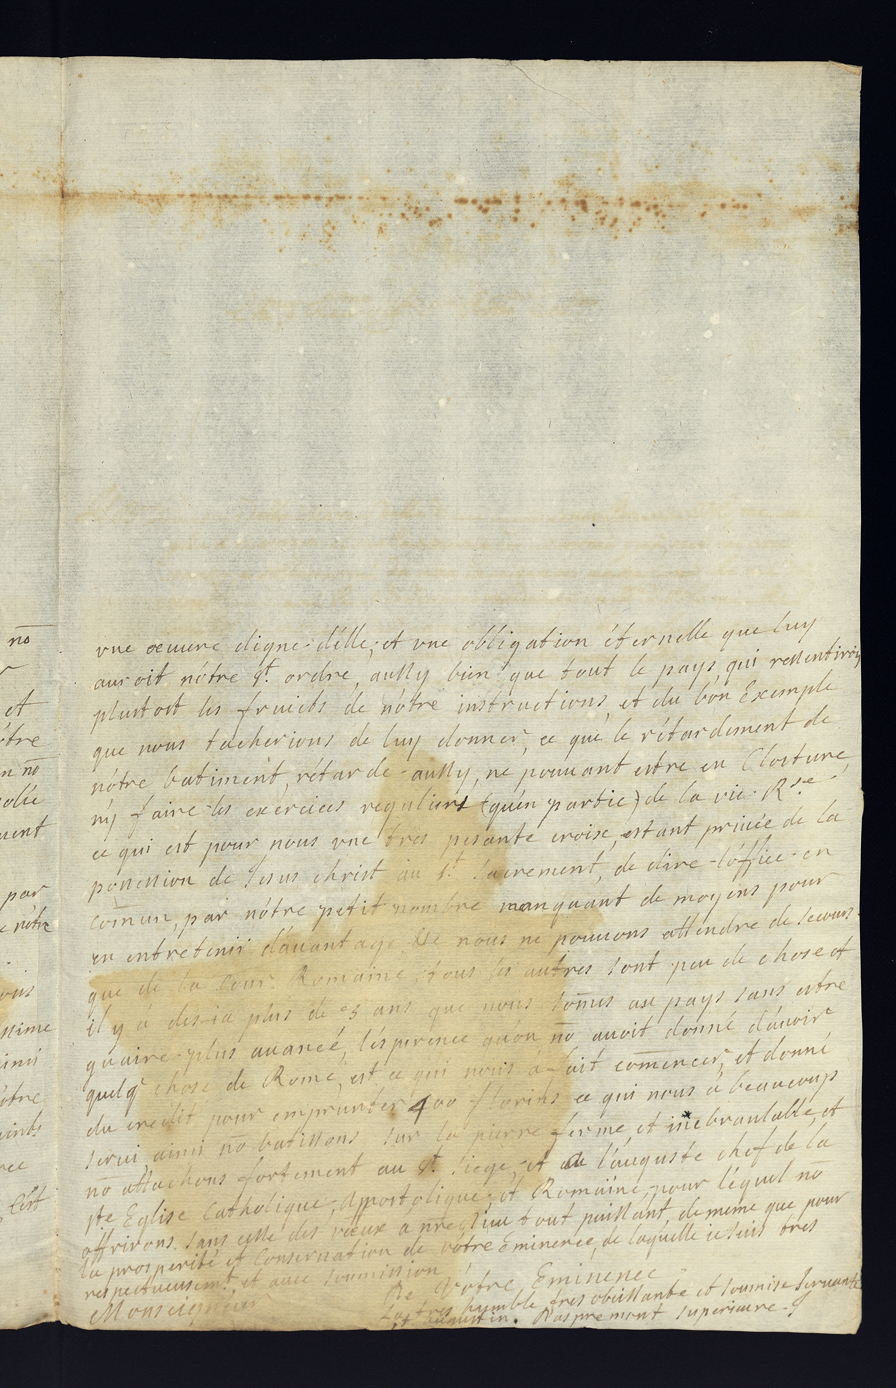 no
et
nre
n no
solié
ment
par
e nótre
ous
ssime
ainsi
ótre
aints
ree
Cést
vne oeuure digne d'élle, et vne obligation éternelle que luy
auroit nótre St. ordre, aussy bien que tout le pays, qui ressentiroit
plustost les fruicts de nótre instructions, et du bon Exemple
que nous tacherions de luy donner, ce que le rétardement de
nótre batiment, rétarde aussy, ne pouuant estre en Closture,
ny faire les exercices reguliers (qu'en partie) de la vie Rse
ce qui est pour nous vne tres pesante croise, estant priuée de la
possession de Jesus christ au St. Sacrement, de dire l'office en
comun, par nótre petit nombre manquant de moyens pour
en entretenir d'auantage. Ne nous ne pouuons attendre de secours
que de la Cour Romaine, tous les autres sont peu de chose et
il y à des-ia plus de 25 ans que nous somes au pays sans estre
quaire plus auancé, l'ésperence qu'on no auoit donné d'áuoir
quelq chose de Rome, est ce qui nous à fait comencer, et donné
du credit pour emprunter 400 florins ce qui nous à beaucoup
serui ainsi no batissons sur la pierre ferme et inebranlable, et
no attachons fortement au St. Siege, et a l'auguste chef de la
ste Eglise Catholique, Apostolique, et Romaine, pour léquel no
offrirons sans cesse des voeux a nre Dieu tout puissant, de meme que pour
la prosperité et Conseruation de vótre Eminence, de laquelle ie suis tres
respectueusemt, et auec soumission
Monseigneur
De Vótre Eminence
La tres humble, tres obeissante et soumise Seruante
St Augustin. Raspremont superieure